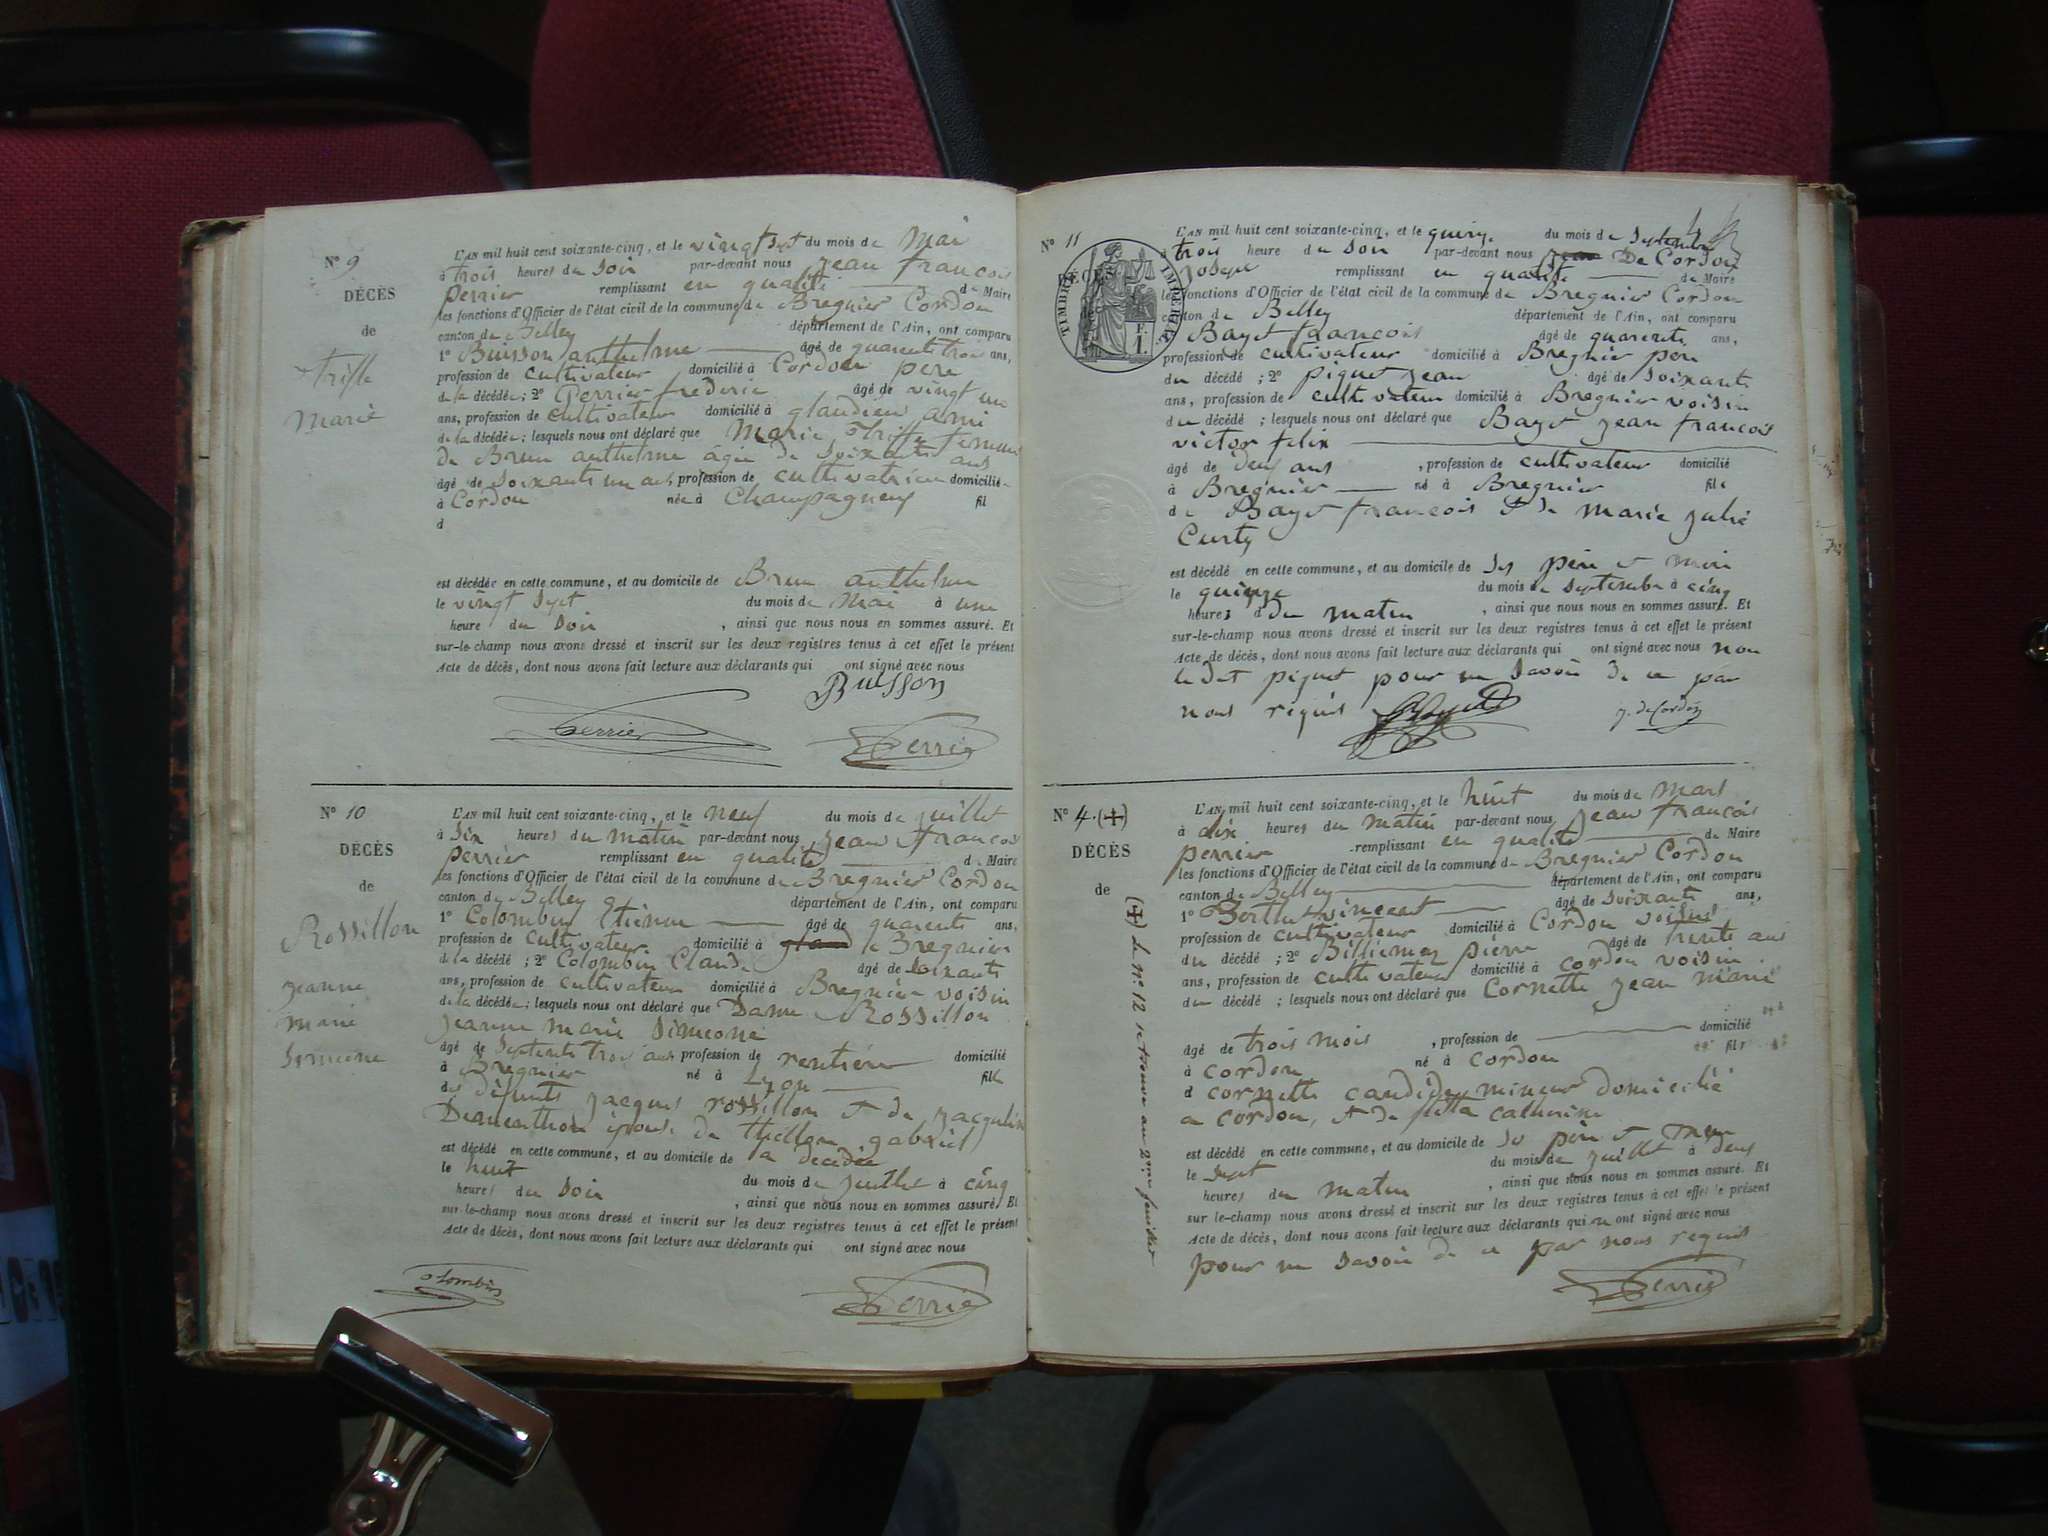 N° 9
DÉCÈS
de
Triffe
Marie
L'AN mil huit cent soixante-cinq, et le vingt sept du mois de Mai
à trois heures du Soir par-devant nous jean francois
perrier remplissant en qualité de Maire
les fonctions d'Officier de l'état civil de la commune de Bregnier Cordon
canton de Belley département de l'Ain, ont comparu
1° Buisson anthelme âgé de quarente trois ans,
profession de cultivateur domicilié à Cordon pere
de la décédée; 2° Perrier frederic âgé de vingt un
ans, profession de cultivateur domicilié à glandieu ami
de la décédée; lesquels nous ont déclaré que Marie Triffe femme
de Brun anthelme agee de Soixante ans
âgé de soixante un ans, profession de cultivatrice domicilié
à Cordon née à Champagneux fil
d
est décédée en cette commune, et au domicile de Brun anthelme
le vingt Sept du mois de Mai à une
heure du Soir, ainsi que nous nous en sommes assuré. Et
sur-le-champ nous avons dressé et inscrit sur les deux registres tenus à cet effet le présent
Acte de décès, dont nous avons fait lecture aux déclarants qui ont signé avec nous
Buisson
Perrier Perrier
N° 10
DÉCÈS
de
Rossillon
jeanne
marie
Simeone
L'AN mil huit cent soixante-cinq, et le neuf du mois de juillet
à Six heures du matin par-devant nous jean francois
perrier remplissant en qualité de Maire
les fonctions d'Officier de l'état civil de la commune de Bregnier Cordon
canton de Belley département de l'Ain, ont comparu
1° Colombin Etienne âgé de quarente ans,
profession de cultivateur domicilié à Bregnier
de la décédé; 2° Colombin Claude âgé de soixante
ans, profession de cultivateur domicilié à Bregnier voisin
de la décédée; lesquels nous ont déclaré que Dame Rossillon
jeanne marie Simeone
âgé de Septente trois ans profession de rentiere domicilié
à Bregnier né à Lyon fille
des défunts jacques rossillon et de jacqueline
Dementhon épouse de Thellon gabriel
est décédé en cette commune, et au domicile de la décédée
le huit du mois de juillet à cinq
heures du Soir, ainsi que nous nous en sommes assuré. Et
sur-le-champ nous avons dressé et inscrit sur les deux registres tenus à cet effet le présent
Acte de décès, dont nous avons fait lecture aux déclarants qui ont signé avec nous
Colombin Perrier
N° 11
DÉCÈS
TIMBRE IMPERIAL
L'AN mil huit cent soixante-cinq, et le quinze du mois de Septembre
à trois heure du Soir par-devant nous De Cordon
joseph remplissant en qualité de Maire
les fonctions d'Officier de l'état civil de la commune de Bregnier Cordon
canton de Belley département de l'Ain, ont comparu
Bayet francois âgé de quarente ans,
profession de cultivateur domicilié à Bregnier pere
du décédé; 2° piquet jean âgé de Soixante
ans, profession de cultivateur domicilié à Bregnier voisin
du décédé; lesquels nous ont déclaré que Bayet jean francois
victor felix
âgé de deux ans, profession de cultivateur domicilié
à Bregnier né à Bregnier fils
de Bayet francois et de marie julie
Curty
est décédé en cette commune, et au domicile de Ses père et mère
le quinze du mois de Septembre à cinq
heures du matin, ainsi que nous nous en sommes assuré. Et
sur-le-champ nous avons dressé et inscrit sur les deux registres tenus à cet effet le présent
Acte de décès, dont nous avons fait lecture aux déclarants qui ont signé avec nous non
ledit piquet pour ne Savoir de ce par
nous requis Bayet j. de Cordon
N° 4 (+)
DÉCÈS
de
(+) Le N° 12 se trouve au 2me feuillet
L'AN mil huit cent soixante-cinq, et le huit du mois de mars
à dix heures du matin par-devant nous jean francois
perrier remplissant en qualité de Maire
les fonctions d'Officier de l'état civil de la commune de Bregnier Cordon
canton de Belley département de l'Ain, ont comparu
1° Berthet vincent âgé de soixante ans,
profession de cultivateur domicilié à Cordon voisin
du décédé; 2° Billiemaz pierre âgé de trente ans
ans, profession de cultivateur domicilié à cordon voisin
du décédé; lesquels nous ont déclaré que Cornette jean marie
âgé de trois mois, profession de domicilié
à cordon né à cordon fils
d cornette candide mineur domicilié
a cordon, et de catherine
est décédé en cette commune, et au domicile de Ses père et mère
le Sept du mois de juillet à deux
heures du matin, ainsi que nous nous en sommes assuré. Et
sur-le-champ nous avons dressé et inscrit sur les deux registres tenus à cet effet le présent
Acte de décès, dont nous avons fait lecture aux déclarants qui n ont signé avec nous
pour ne Savoir de ce par nous requis
Perrier